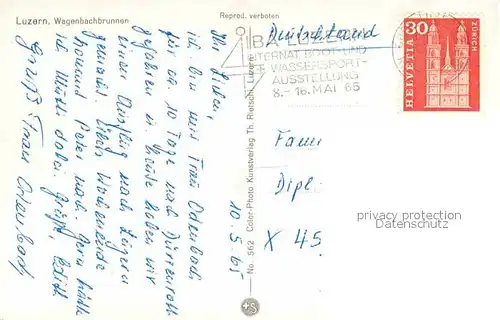 Luzern, Wagenbachbrunnen
Reprod. verboten
Ihr Lieben,
ich bin mit Frau Odenbach
für ca 10 Tage nach Dürrenroth
gefahren u. heute haben wir
einen Ausflug nach Luzern
gemacht. Übers Wochenende
kommt Peter nach. Gern hätte
ich Mutti dabei. Grüße, Edith
Gruß Frau Odenbach
No. 562 Color-Photo Kunstverlag Th. Rietschi, Luzern
10.5.65
Deutschland
IBA LUZERN
INTERNAT. BOOT- UND
WASSERSPORT-
AUSSTELLUNG
8.-16. MAI 65
30
ZÜRICH
HELVETIA
Fami
Dipl.
X 45
privacy protection
Datenschutz
+S